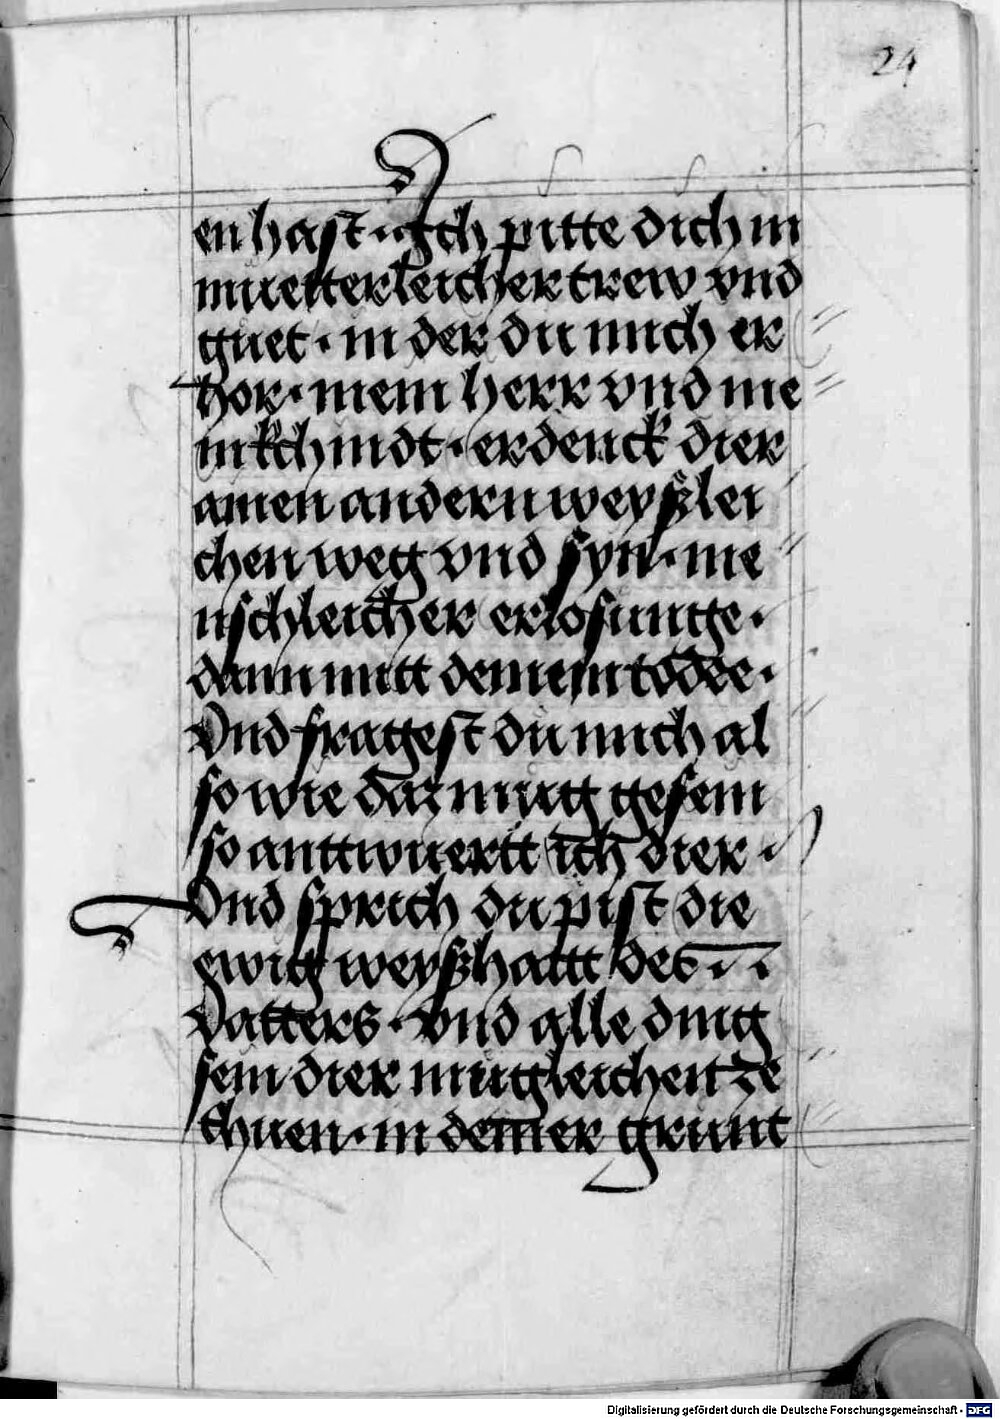 24
en hast · Ich pitte dich in
mueterleicher trew vnd
guet · in der du mich er
hor · mein herr vnd me
in kchindt · erdenck dier
ainen andern weyßlei
chen weg vnd syn · me
nschleicher erlosunge ·
dann mitt deinem tode ·
Vnd fragest du mich al
so wie daz mug gesein
so anttwuertt ich dier ·
Vnd sprich du pist die
ewig weyßhaitt des
Vatters · vnd alle ding
sein dier mugleichen ze
thuen · in deiner grunt
Digitalisierung gefördert durch die Deutsche Forschungsgemeinschaft - DFG